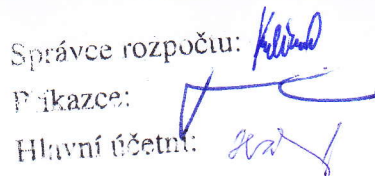 Správce rozpočtu:
Příkazce:
Hlavní účetní: